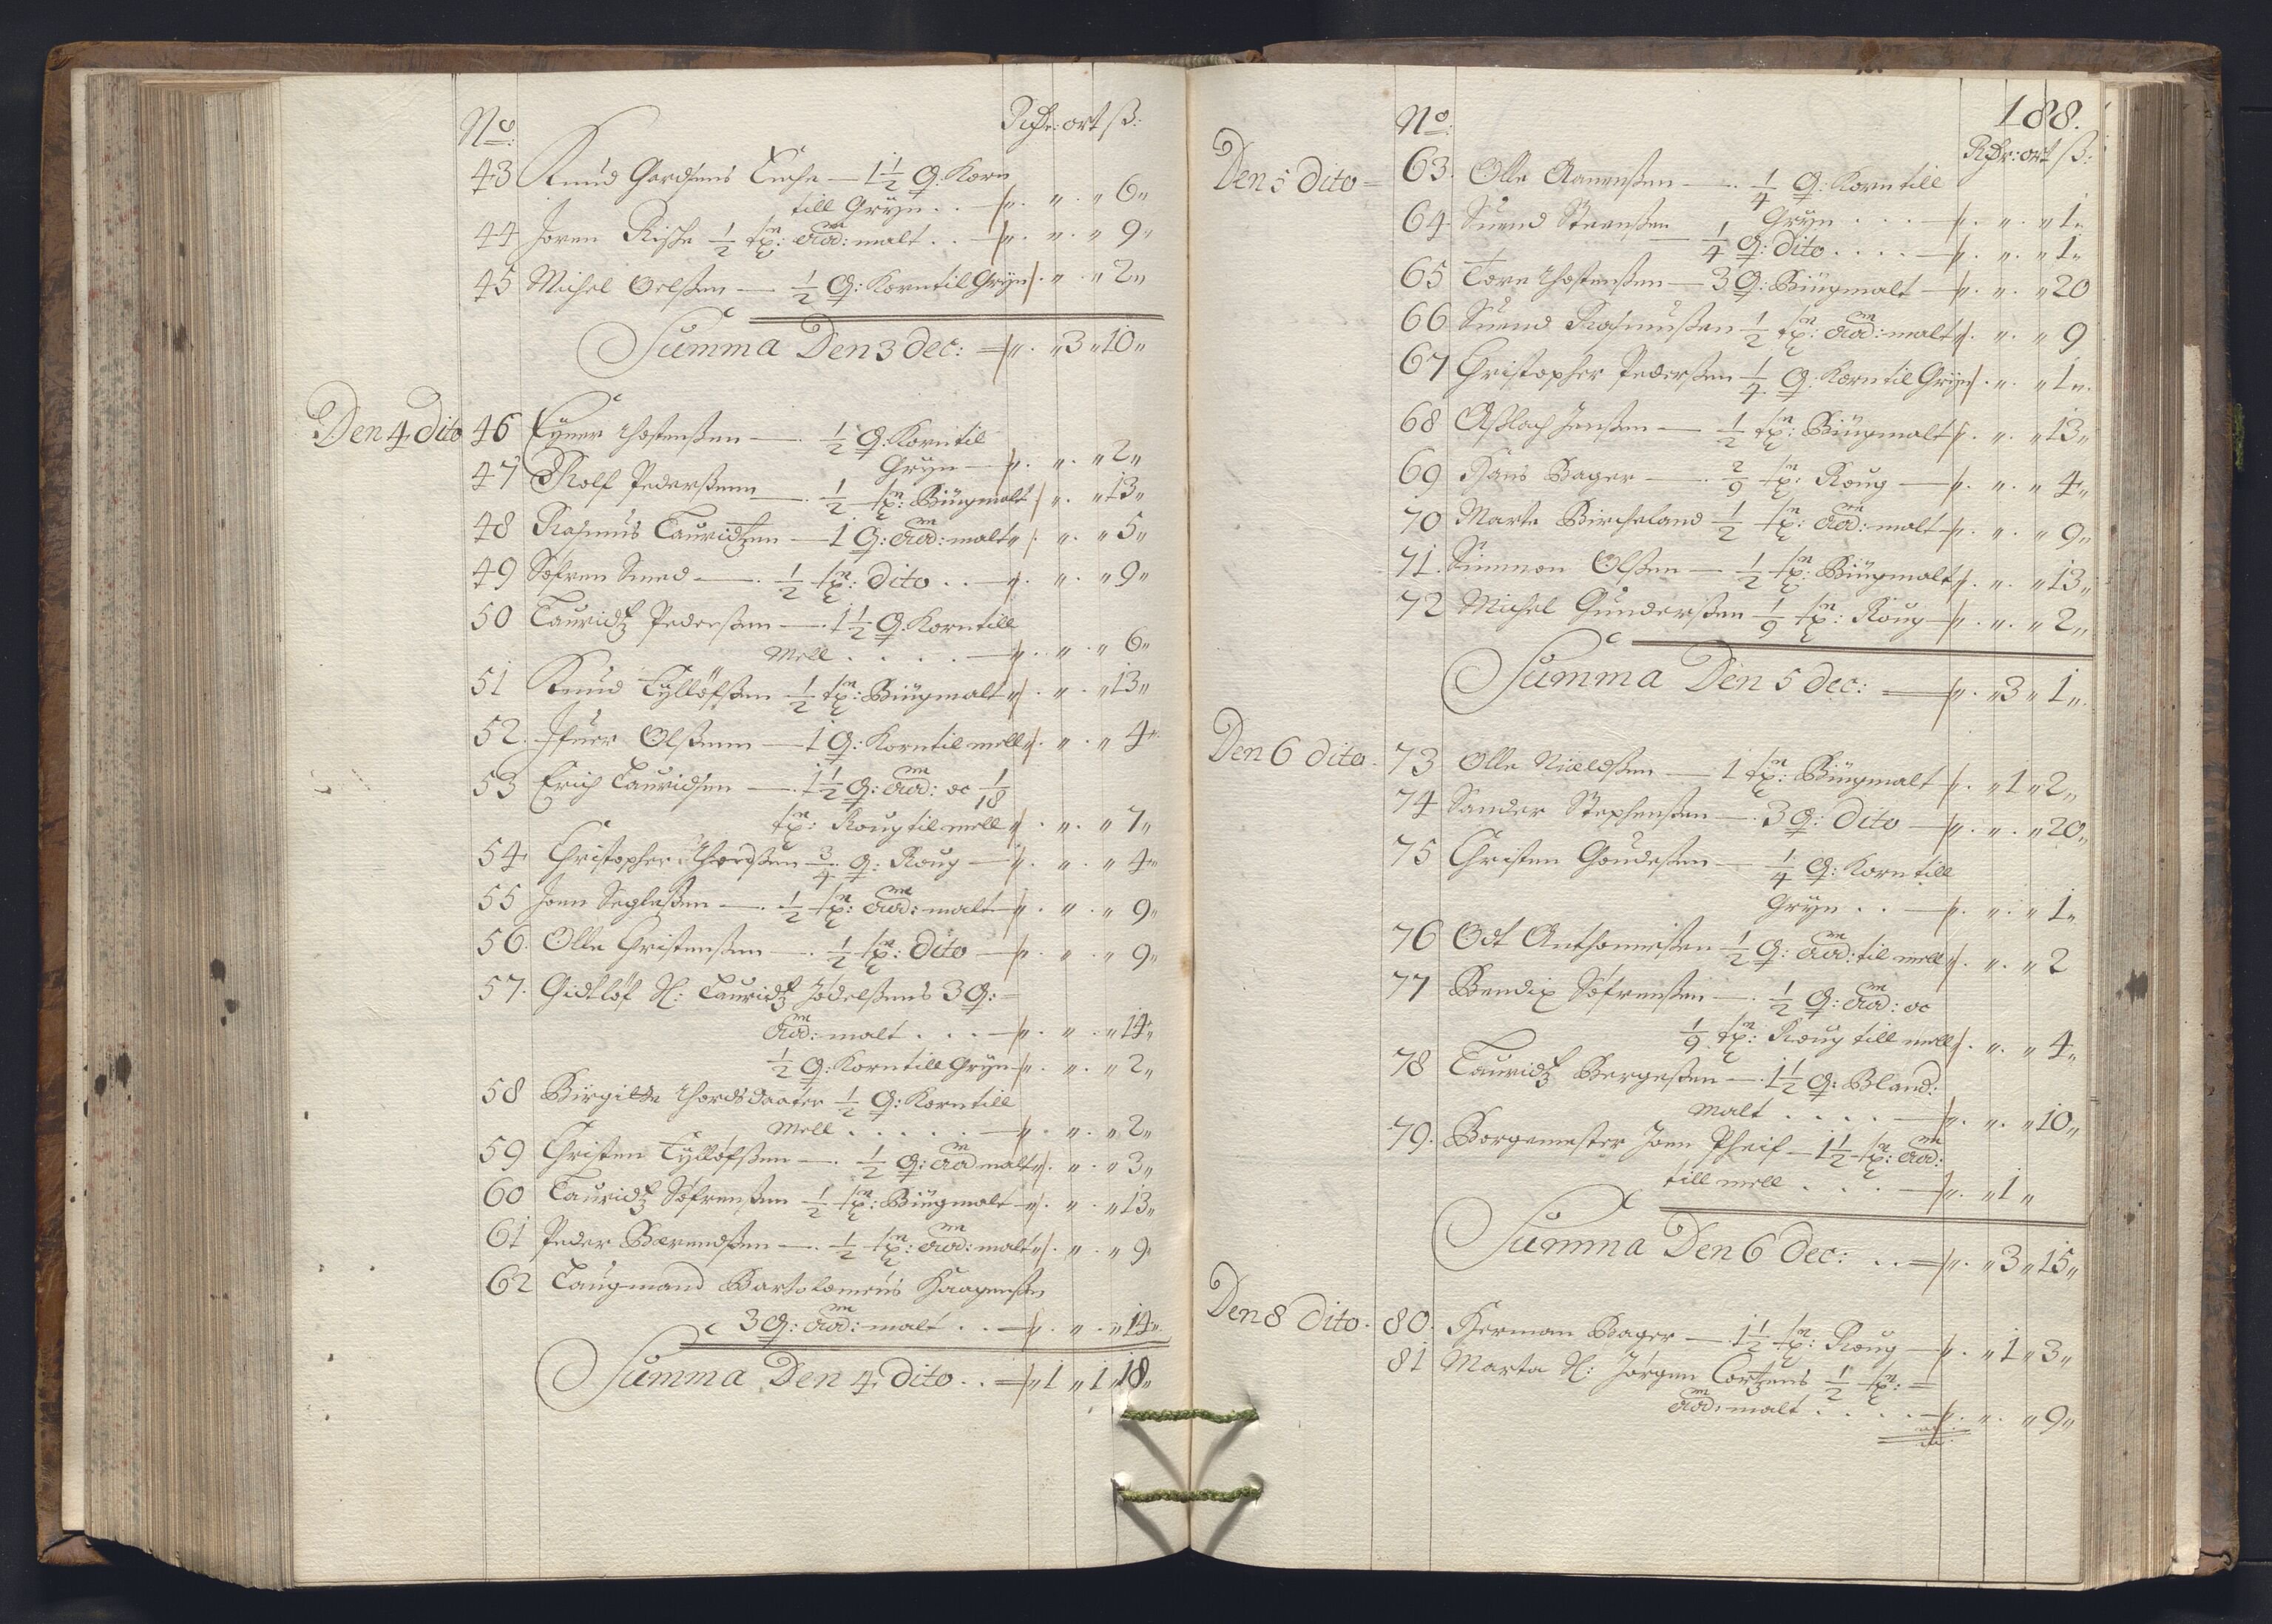 No: Rdr: ort ß:
43 Knud Gardsens Enche — 1 1/2 Q: Korn
till Gryn . . — „ . „ . „ 6 „
44 Joren Rische 1/2 tøn: Aad: malt . . — „ . „ . „ 9 „
45 Michel Oelßen — 1/2 Q: Korn til Gryn „ . „ . „ 2 „
Summa Den 3 dec: = „ . „ 3 „ 10 „
Den 4 dito 46 Eyner Thostenßen — . 1/2 Q: Korn til
Gryn — „ . „ . „ 2 „
47 Rolf Pederßenn — . 1/2 tøn: Biugmalt „ . „ . „ 13 „
48 Rasmus Lauridtzen — 1 Q: Aad: malt „ . „ . „ 5 „
49 Søfren Smed — . 1/2 tøn: dito . . — „ . „ . „ 9 „
50 Lauridtz Pederßen — . 1 1/2 Q. Korn till
Mell . . . . — „ . „ . „ 6 „
51 Knud Tylløfßen 1/2 tøn: Biugmalt „ . „ . „ 13 „
52. Ifuer Olßenn — 1 Q: Korn til mell „ . „ . „ 4 „
53 Erich Lauridsen — . 1 1/2 Q: Aad: oc 1/18
tøn: Roug til mell „ . „ . „ 7 „
54 Christopher Thordßen 3/4 Q: Roug — „ . „ . „ 4 „
55 Joen Seglaßen — . 1/2 tøn: Aad: malt — „ . „ . „ 9 „
56. Olle Christenßen — . 1/2 tøn: dito — „ . „ . „ 9 „
57. Gidtløf Sl: Lauridtz Jødelßens 3 Q: =
Aad: malt . . . — „ . „ . „ 14 „
1/2 Q: Korn till Gryn — „ . „ . „ 2 „
58 Birgitte Thordsdaater 1/2 Q: Korn till
Mell . . . . . — „ . „ . „ 2 „
59 Christen Tylløfßen — . 1/2 Q: Aad malt „ . „ . „ 3 „
60 Lauridtz Søfrenßen 1/2 tøn: Biugmalt — „ . „ . „ 13 „
61 Peder Bærendßen — . 1/2 tøn: Aad: malt „ . „ . „ 9
62 Laugmand Bartolomeus Haagenßen
3 Q: Aad: malt . . — „ . „ . „ 14 „
Summa Den 4 dito . . = „ 1 „ 1 „ 18 „
188.
No: Rdr: ort ß:
Den 5 dito = 63. Olle Aanenßen — . 1/4 Q: Korn till
Gryn . . . — „ . „ . „ 1 „
64 Suend Steenßen — 1/4 Q: dito . . . . — „ . „ . „ 1 „
65 Tore Thostenßen — 3 Q: Biugmalt — „ . „ . „ 20
66 Suend Rasmußen 1/2 tøn: Aad: malt „ . „ . „ 9
67 Christopher Pederßen 1/4 Q: Korn til Gryn „ . „ . „ 1 „
68 Aßlach Jenßen — 1/2 tøn: Biugmalt „ . „ . „ 13 „
69 Hans Bager — . 2/9 tøn: Roug — „ . „ . „ 4 „
70 Marte Bircheland 1/2 tøn: Aad: malt — „ . „ . „ 9 „
71. Simmon Olßen — 1/2 tøn: Biugmalt „ . „ . „ 13 „
72 Michel Gunderßen 1/9 tøn: Roug — „ . „ . „ 2 „
Summa Den 5 dec: = „ . „ 3 „ 1 „
Den 6 dito . 73 Olle Nieldßen — 1 tøn: Biugmalt „ . „ 1 „ 2 „
74 Sander Stephenßen — . 3 Q: dito — „ . „ . „ 20 „
75 Christen Goudeßen — 1/4 Q: Korn till
Gryn . . — „ . „ . „ 1 „
76 Odt Anthonißen 1/2 Q: Aad: til mell „ . „ . „ 2
77 Bendix Søfrenßen — . 1/2 Q: Aad: oc
1/9 tøn: Roug till mell „ . „ . „ 4 „
78 Lauridtz Bergeßen — . 1 1/2 Q: Bland:
Malt . . . . — „ . „ . „ 10 „
79. Borgemester Joen Pheif — 1 1/2 tøn: Aad:
till mell . . . — „ . „ 1 „
Summa Den 6 dec: . . = „ . „ 3 „ 15 „
Den 8 dito . 80. Herman Bager — . 1 1/2 tøn: Roug — „ . „ 1 „ 3 „
81 Marta Sl: Jørgen Cortzens 1/2 tøn: =
Aad: malt . . . . — „ . „ . „ 9 „